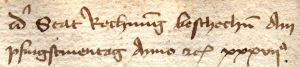 Stat Rechnung beschechen Am
pfingstmentag Anno xxxvii